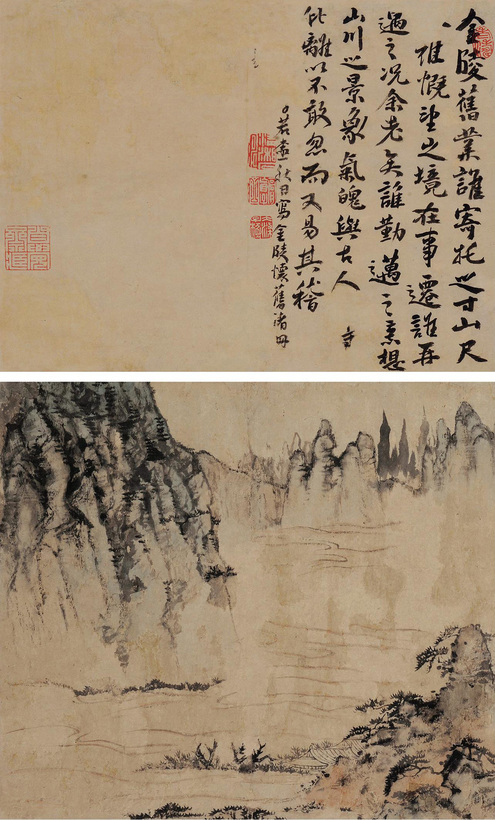 金陵舊業誰寄托之寸山尺
惟慨望之境在事遷誰再
過之況余老矣誰勤邁之素想
山川之景象氣魄與古人
離以不敢忽而又易其稽
秋日寫金陵懷舊諸冊